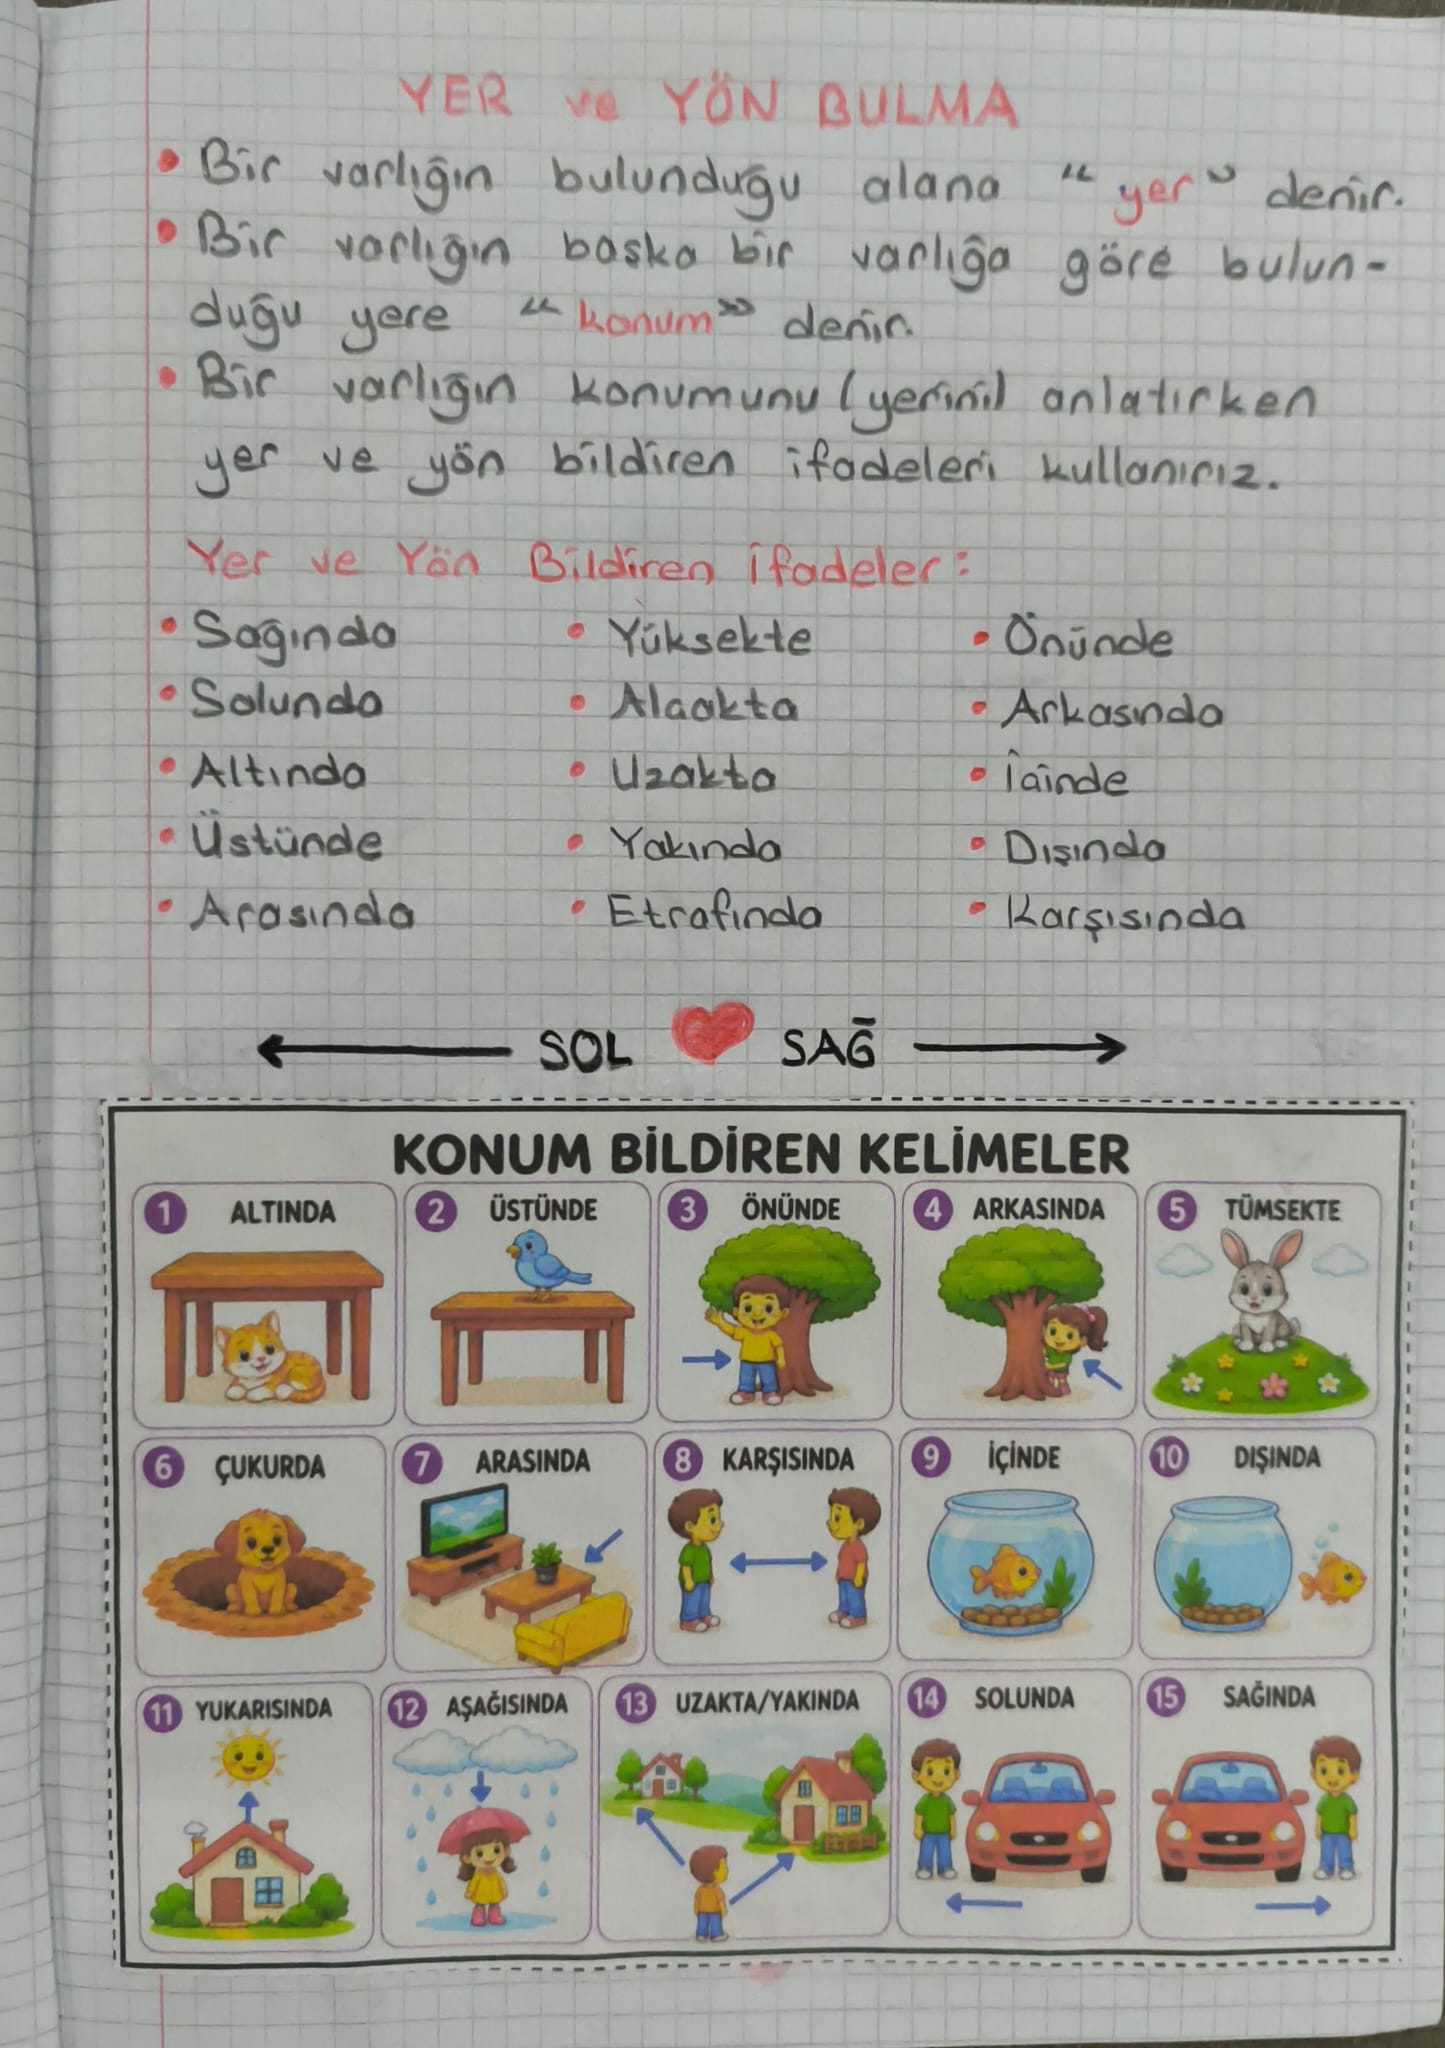 YER ve YÖN BULMA
• Bir varlığın bulunduğu alana “yer” denir.
• Bir varlığın başka bir varlığa göre bulun-
duğu yere “konum” denir.
• Bir varlığın konumunu (yerini) anlatırken
yer ve yön bildiren ifadeleri kullanırız.
Yer ve Yön Bildiren İfadeler:
• Sağında • Yüksekte • Önünde
• Solunda • Alçakta • Arkasında
• Altında • Uzakta • İçinde
• Üstünde • Yakında • Dışında
• Arasında • Etrafında • Karşısında
SOL SAĞ
KONUM BİLDİREN KELİMELER
1 ALTINDA 2 ÜSTÜNDE 3 ÖNÜNDE 4 ARKASINDA 5 TÜMSEKTE
6 ÇUKURDA 7 ARASINDA 8 KARŞISINDA 9 İÇİNDE 10 DIŞINDA
11 YUKARISINDA 12 AŞAĞISINDA 13 UZAKTA/YAKINDA 14 SOLUNDA 15 SAĞINDA